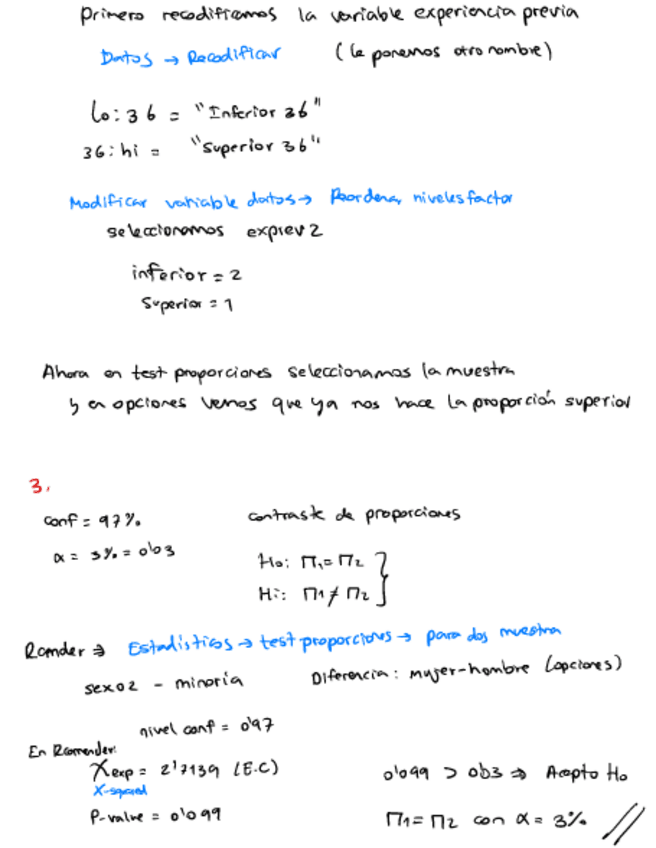 Primero recodificamos la variable experiencia previa
Datos → Recodificar (le ponemos otro nombre)
lo:36 = "Inferior 36"
36:hi = "Superior 36"
Modificar variable datos → Reordenar niveles factor
seleccionamos exprev2
inferior = 2
Superior = 1
Ahora en test proporciones seleccionamos la muestra
y en opciones vemos que ya nos hace la proporción superior
3.
conf = 97%. contraste de proporciones
α = 3% = 0'03
Ho: Π1 = Π2
Hi: Π1 ≠ Π2
Rcmder → Estadísticos → test proporciones → para dos muestra
sexo2 - minoría Diferencia: mujer-hombre (opciones)
nivel conf = 0'97
En Rcmender:
Xexp = 2'7139 (E.C) 0'099 > 0'03 ⇒ Acepto Ho
X-squared
P-value = 0'099 Π1 = Π2 con α = 3%